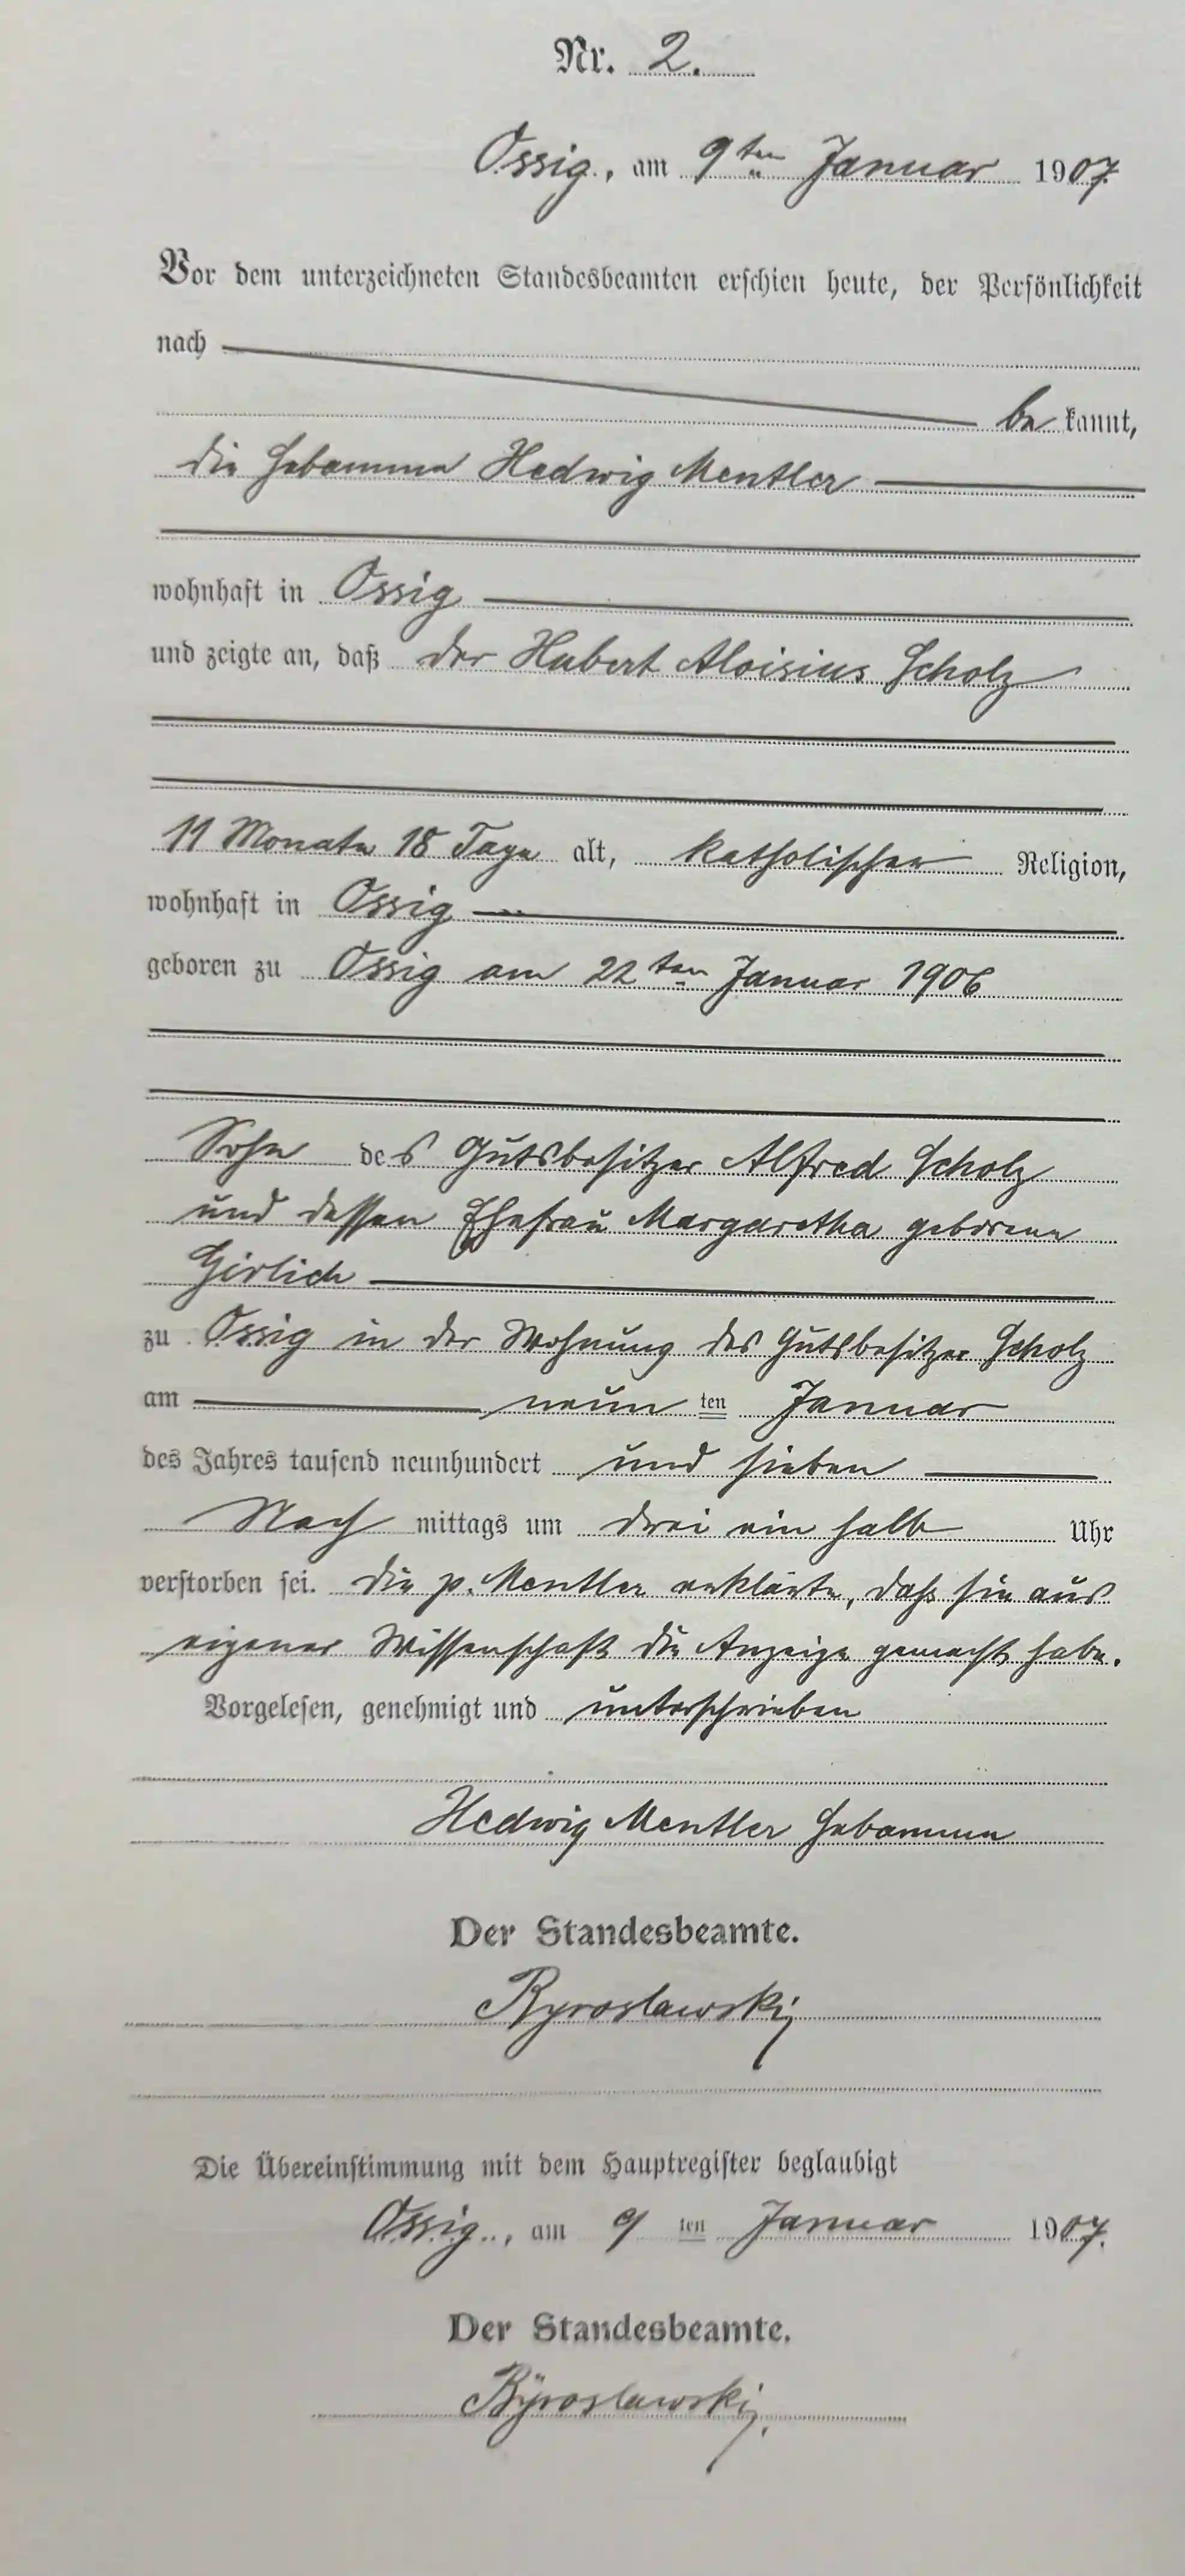 Nr. 2.
Ossig, am 9ten Januar 1907.
Vor dem unterzeichneten Standesbeamten erschien heute, der Persönlichkeit
nach
be kannt,
die Hebamme Hedwig Mentler
wohnhaft in Ossig
und zeigte an, daß der Hubert Aloisius Scholz
11 Monate 18 Tage alt, katholischer Religion,
wohnhaft in Ossig
geboren zu Ossig am 22ten Januar 1906
Sohn des Gutsbesitzer Alfred Scholz
und dessen Ehefrau Margaretha geborene
Girlich
zu Ossig in der Wohnung des Gutsbesitzer Scholz
am neun ten Januar
des Jahres tausend neunhundert und sieben
Nach mittags um drei ein halb Uhr
verstorben sei. Die p. Mentler erklärte, daß sie aus
eigener Wissenschaft die Anzeige gemacht habe.
Vorgelesen, genehmigt und unterschrieben
Hedwig Mentler Hebamme
Der Standesbeamte.
Die Übereinstimmung mit dem Hauptregister beglaubigt
Ossig, am 9 ten Januar 1907.
Der Standesbeamte.